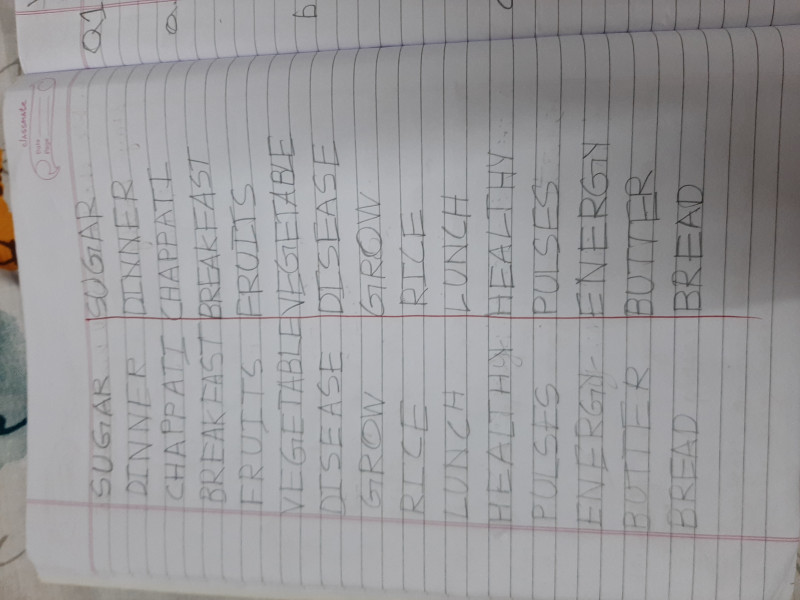 classmate
Date
Page
SUGAR SUGAR
DINNER DINNER
CHAPPATI CHAPPATI
BREAKFAST BREAKFAST
FRUITS FRUITS
VEGETABLE VEGETABE
DISEASE DISEASE
GROW GROW
RICE RICE
LUNCH LUNCH
HEALTHY HEALTHY
PULSES PULSES
ENERGY ENERGY
BUTTER BUTTER
BREAD BREAD